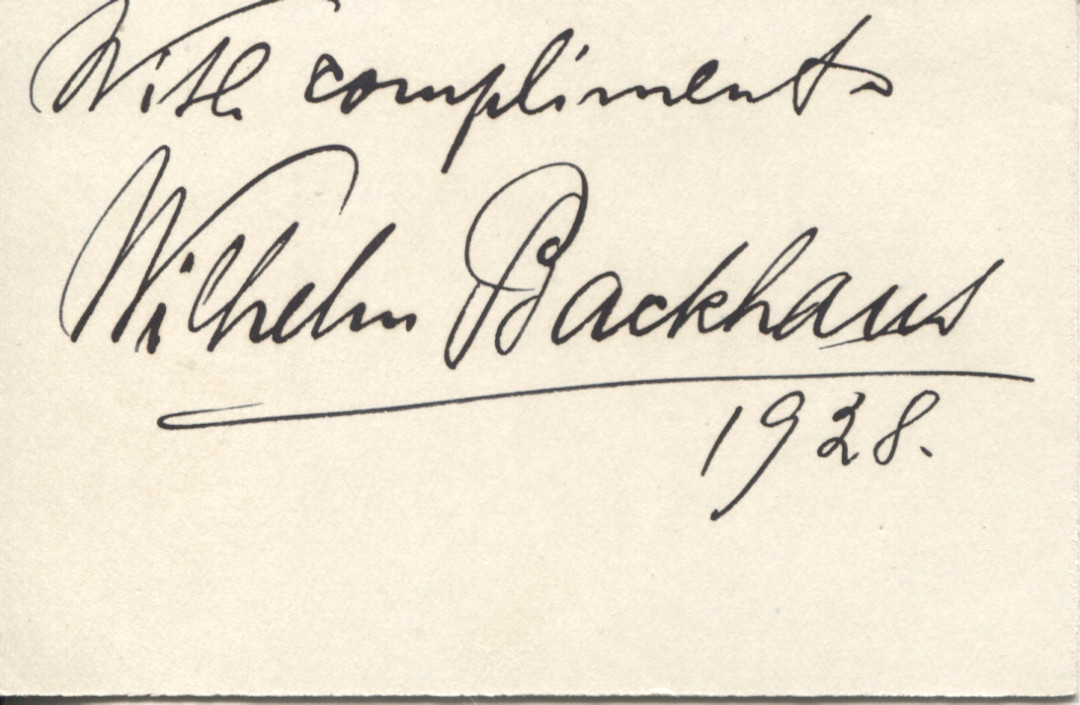 With compliments
Wilhelm Backhaus
1928.